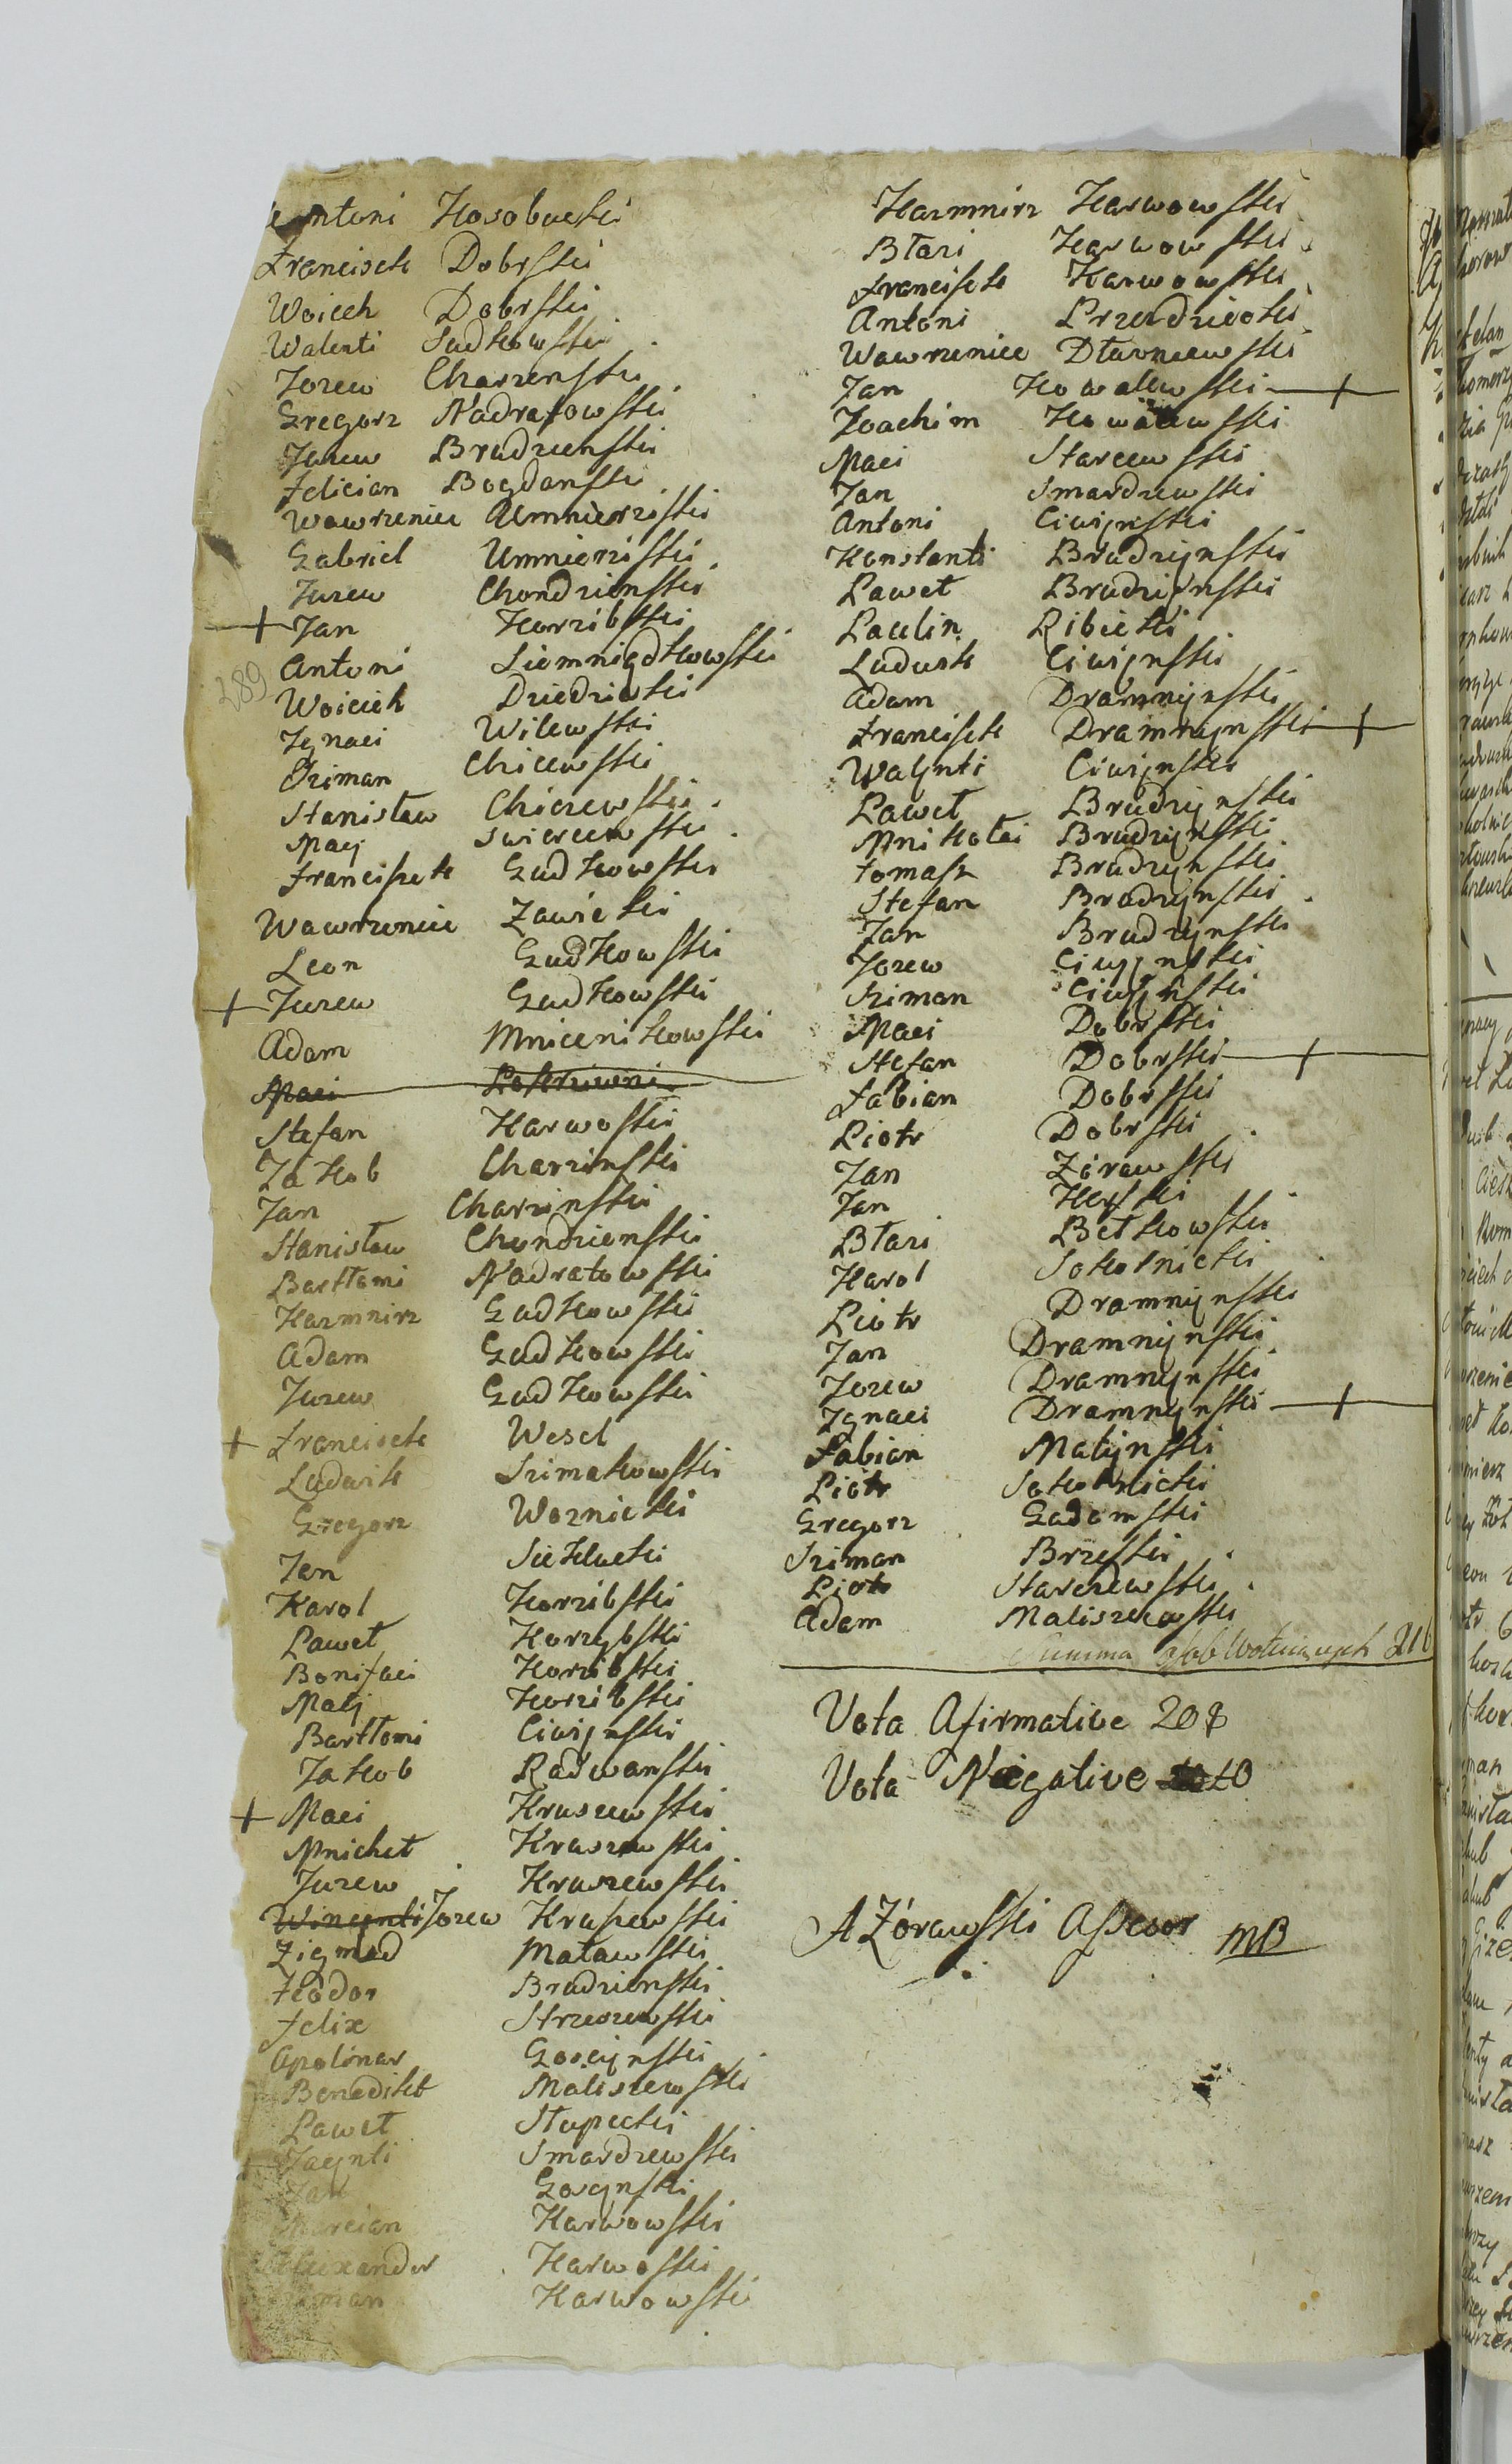 Antoni Kosobucki
Francisek Dobrski
Woicch Dobrski
Walenti Sudkowski
Jozew Charzenski
Gregorz Nadratowski
Juzew Brudzienski
Felician Bogdanski
Wawrzeniec Umnierziski
Gabriel Umnierziski
Juzew Chondzienski
+ Jan Korzibski
Antoni Siemnigdkowski
289
Woicieh Dziedzicki
Jgnaci Wilewski
Sziman Chicewski
Stanisław Chiczewski
Macj Swierczewski
Franciszek Gudkowski
Wawrzeniec Zawicki
Leon Gudkowski
+ Juzew Gudkowski
Adam Mnicenikowski
Maci
Stefan Karwoski
Jakob Charzinski
Jan Charzinski
Stanisław Chondzienski
Bartłomi Nadratowski
Kazmnirz Gudkowski
Adam Gudkowski
Juzew Gudkowski
+ Francisek Wesel
Ludwik Szimakowski
Gregorz Woznicki
Jan Siekłucki
Karol Korzibski
Paweł Korzybski
Bonifaci Korzibski
Macj Korzibski
Bartłomi Ciwijnski
Jakob Radwanski
+ Maci Kruszewski
Mnicheł Kruszewski
Juzew Kruszewski
Wincynti Jozew Kruszewski
Zigmod Matawski
Teodor Brudzienski
Felix Strzeszewski
Apolinar Goscynski
Benedikt Maliszewski
Paweł Słupecki
Jacynti Smardzewski
Jan Goscynski
Marcian Karwowski
Alexander Karwoski
Karwowski
Kazmnirz Karwowski
Błazi Karwowski
Francisek Karwowski
Antoni Przezdziecki
Wawrzeniec Dłuzniewski
Jan Kowalewski +
Joachim Kowalewski
Maci Starcewski
Jan Smardzewski
Antoni Ciwijnski
Konstanti Brudzijnski
Paweł Brudzijnski
Paulin Ribicki
Ludwik Ciwijnski
Adam Dramnijnski
Francisek Dramnijnski +
Walynti Ciwijnski
Paweł Brudzijnski
Mnikołai Brudzijnski
Tomasz Brudzijnski
Stefan Brudzijnski
Jan Brudzijnski
Jozew Ciwijnski
Sziman Ciwijnski
Maci Dobrski
Stefan Dobrski +
Fabian Dobrski
Piotr Dobrski
Jan Zórawski
Jan Kęski
Błazi Bełkowski
Karol Sokolnicki
Piotr Dramnijnski
Jan Dramnijnski
Jozew Dramnijnski
Jgnaci Dramnijnski +
Fabian Malijnski
Piotr Sokolnicki
Gregorz Gadomski
Sziman Brzeski
Piotr Starczewski
Adam Maliszewski
Summa osob Wotuiących 216
Vota Afirmative 208
Vota Nêgative 10
A Zórawski Assesor mB